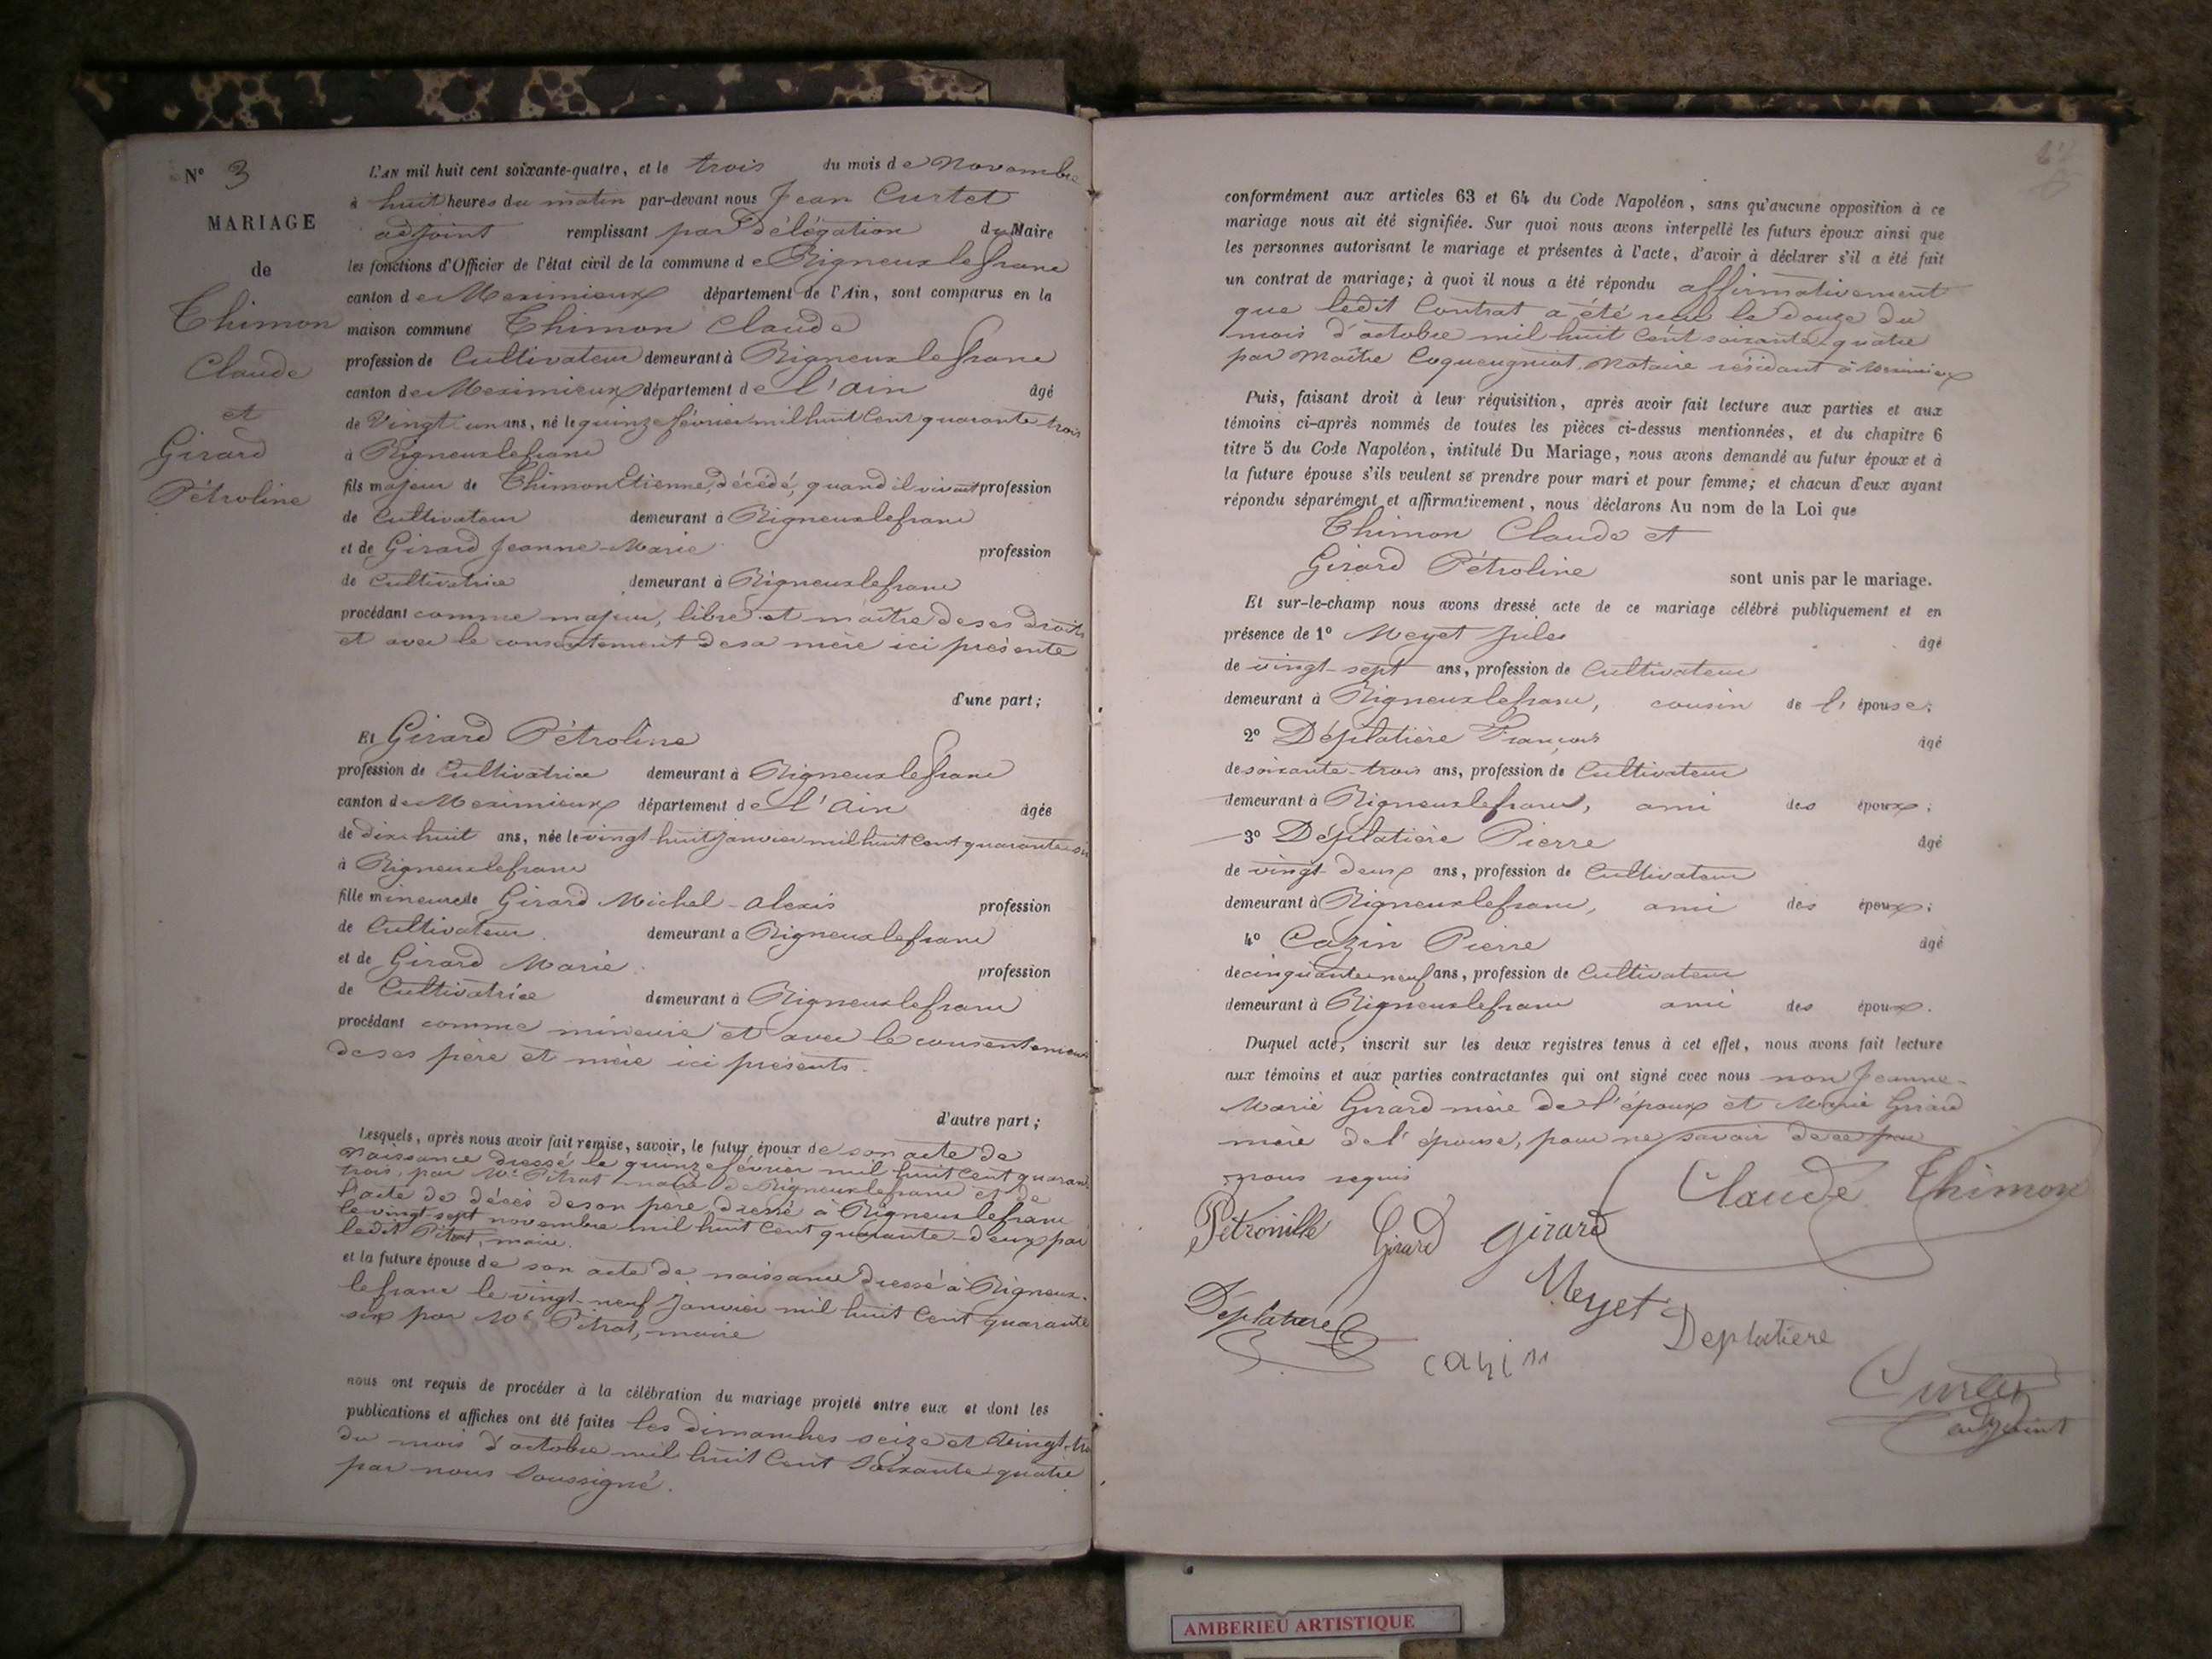 N° 3
MARIAGE
de
Thimon
Claude
et
Girard
Pétroline
L'AN mil huit cent soixante-quatre, et le trois du mois de Novembre
à huit heures du matin par-devant nous Jean Curtet
adjoint remplissant par délégation du Maire
les fonctions d'Officier de l'état civil de la commune de Rigneux le franc
canton de Meximieux département de l'Ain, sont comparus en la
maison commune Thimon Claude
profession de Cultivateur demeurant à Rigneux le franc
canton de Meximieux département de l'Ain âgé
de Vingt-un ans, né le quinze février mil huit cent quarante trois
à Rigneux le franc
fils majeur de Thimon Etienne, décédé, quand il vivait profession
de Cultivateur demeurant à Rigneux le franc
et de Girard Jeanne-Marie profession
de Cultivatrice demeurant à Rigneux le franc
procédant comme majeur, libre et maître de ses droits
et avec le consentement de sa mère ici présente
d'une part;
Et Girard Pétroline
profession de Cultivatrice demeurant à Rigneux le franc
canton de Meximieux département de l'Ain âgée
de dix-huit ans, née le vingt-huit janvier mil huit cent quarante-six
à Rigneux le franc
fille mineure de Girard Michel-Alexis profession
de Cultivateur demeurant à Rigneux le franc
et de Girard Marie profession
de Cultivatrice demeurant à Rigneux le franc
procédant comme mineure et avec le consentement
de ses père et mère ici présents.
d'autre part;
Lesquels, après nous avoir fait remise, savoir, le futur époux de son acte de
Naissance dressé le quinze février mil huit cent quarante
trois, par Mr Pitrat maire de Rigneux le franc et de
l'acte de décès de son père, dressé à Rigneux le franc
le vingt-sept novembre mil huit cent quarante-deux par
ledit Pitrat, maire.
et la future épouse de son acte de naissance dressé à Rigneux-
le franc le vingt-neuf janvier mil huit cent quarante
six par Mr Pitrat, maire
nous ont requis de procéder à la célébration du mariage projeté entre eux et dont les
publications et affiches ont été faites les dimanches seize et vingt-trois
du mois d'octobre mil huit cent soixante-quatre
par nous soussigné.
conformément aux articles 63 et 64 du Code Napoléon, sans qu'aucune opposition à ce
mariage nous ait été signifiée. Sur quoi nous avons interpellé les futurs époux ainsi que
les personnes autorisant le mariage et présentes à l'acte, d'avoir à déclarer s'il a été fait
un contrat de mariage; à quoi il nous a été répondu affirmativement
que ledit Contrat a été reçu le douze du
mois d'octobre mil huit cent soixante-quatre
par Maître Coqueugniot Notaire résidant à Meximieux
Puis, faisant droit à leur réquisition, après avoir fait lecture aux parties et aux
témoins ci-après nommés de toutes les pièces ci-dessus mentionnées, et du chapitre 6
titre 5 du Code Napoléon, intitulé Du Mariage, nous avons demandé au futur époux et à
la future épouse s'ils veulent se prendre pour mari et pour femme; et chacun d'eux ayant
répondu séparément et affirmativement, nous déclarons Au nom de la Loi que
Thimon Claude et
Girard Pétroline
sont unis par le mariage.
Et sur-le-champ nous avons dressé acte de ce mariage célébré publiquement et en
présence de 1° Meyet Jules âgé
de vingt-sept ans, profession de Cultivateur
demeurant à Rigneux le franc, cousin de l'épouse;
2° Déplatière François âgé
de soixante-trois ans, profession de Cultivateur
demeurant à Rigneux le franc, ami des époux;
3° Déplatière Pierre âgé
de vingt-deux ans, profession de Cultivateur
demeurant à Rigneux le franc, ami des époux;
4° Cazin Pierre âgé
de cinquante-neuf ans, profession de Cultivateur
demeurant à Rigneux le franc ami des époux.
Duquel acte, inscrit sur les deux registres tenus à cet effet, nous avons fait lecture
aux témoins et aux parties contractantes qui ont signé avec nous non Jeanne-
Marie Girard mère de l'époux et Marie Girard
mère de l'épouse, pour ne savoir de ce par
nous requis
Claude Thimon
Pétronille Girard Girard
Meyet
Déplatière
Deplatiere
cazin
Curtet
adjoint
AMBERIEU ARTISTIQUE